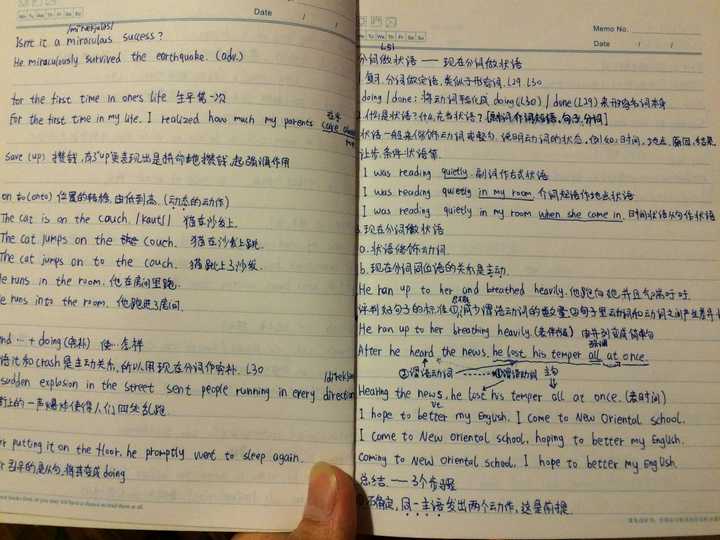 Date / /
/mi'rækjələs/
Isn't it a miraculous success?
He miraculously survived the earthquake. (adv.)
for the first time in one's life 生平第一次
For the first time in my life, I realized how much my parents
save (up) 攒钱, 有了"up"更表现出是拼命地攒钱, 起强调作用
on to (onto) 位置的转移, 由低到高. (动态的动作)
The cat is on the couch. /kautʃ/ 猫在沙发上.
The cat jumps on the couch. 猫在沙发上跳.
The cat jumps on to the couch. 猫跳上了沙发.
He runs in the room. 他在房间里跑.
He runs into the room. 他跑进了房间.
+ doing (宾补) 使…怎样
crash 是主动关系, 所以用现在分词作宾补. L30
sudden explosion in the street sent people running in every direction
街上的一声爆炸使得人们四处乱跑.
putting it on the floor, he promptly went to sleep again.
doing
Memo No.
Mo Tu We Th Fr Sa Su
Date / /
L31
分词做状语 —— 现在分词做状语
1. 复习. 分词做定语, 类似于形容词. L29 L30
doing / done: 将动词转化成 doing (L30) / done (L29) 来形容名词本身
2. 什么是状语? 什么在当状语? [副词 介词短语, 句子, 分词]
状语一般来修饰动词或整句, 说明动词的状态, 例如: 时间, 地点, 原因, 结果,
让步, 条件状语等.
I was reading quietly. 副词作方式状语
I was reading quietly in my room. 介词短语作地点状语
I was reading quietly in my room when she came in. 时间状语从句作状语
3. 现在分词做状语
a. 状语修饰动词.
b. 现在分词同主语的关系是主动.
He ran up to her and breathed heavily. 他跑向她并且气喘吁吁.
评判好句子的标准 ①减少谓语动词的数量 ②句子里动词和动词之间产生
He ran up to her breathing heavily. (表伴随) 由并列变成简单句
After he heard the news, he lost his temper all at once.
②谓语动词 ①谓语动词 主句
Hearing the news, he lost his temper all at once. (表时间)
I hope to better my English. I come to New Oriental school.
I come to New Oriental school, hoping to better my English.
Coming to New Oriental school, I hope to better my English.
总结 —— 3个步骤
确定, 同一主语发出两个动作, 这是前提.